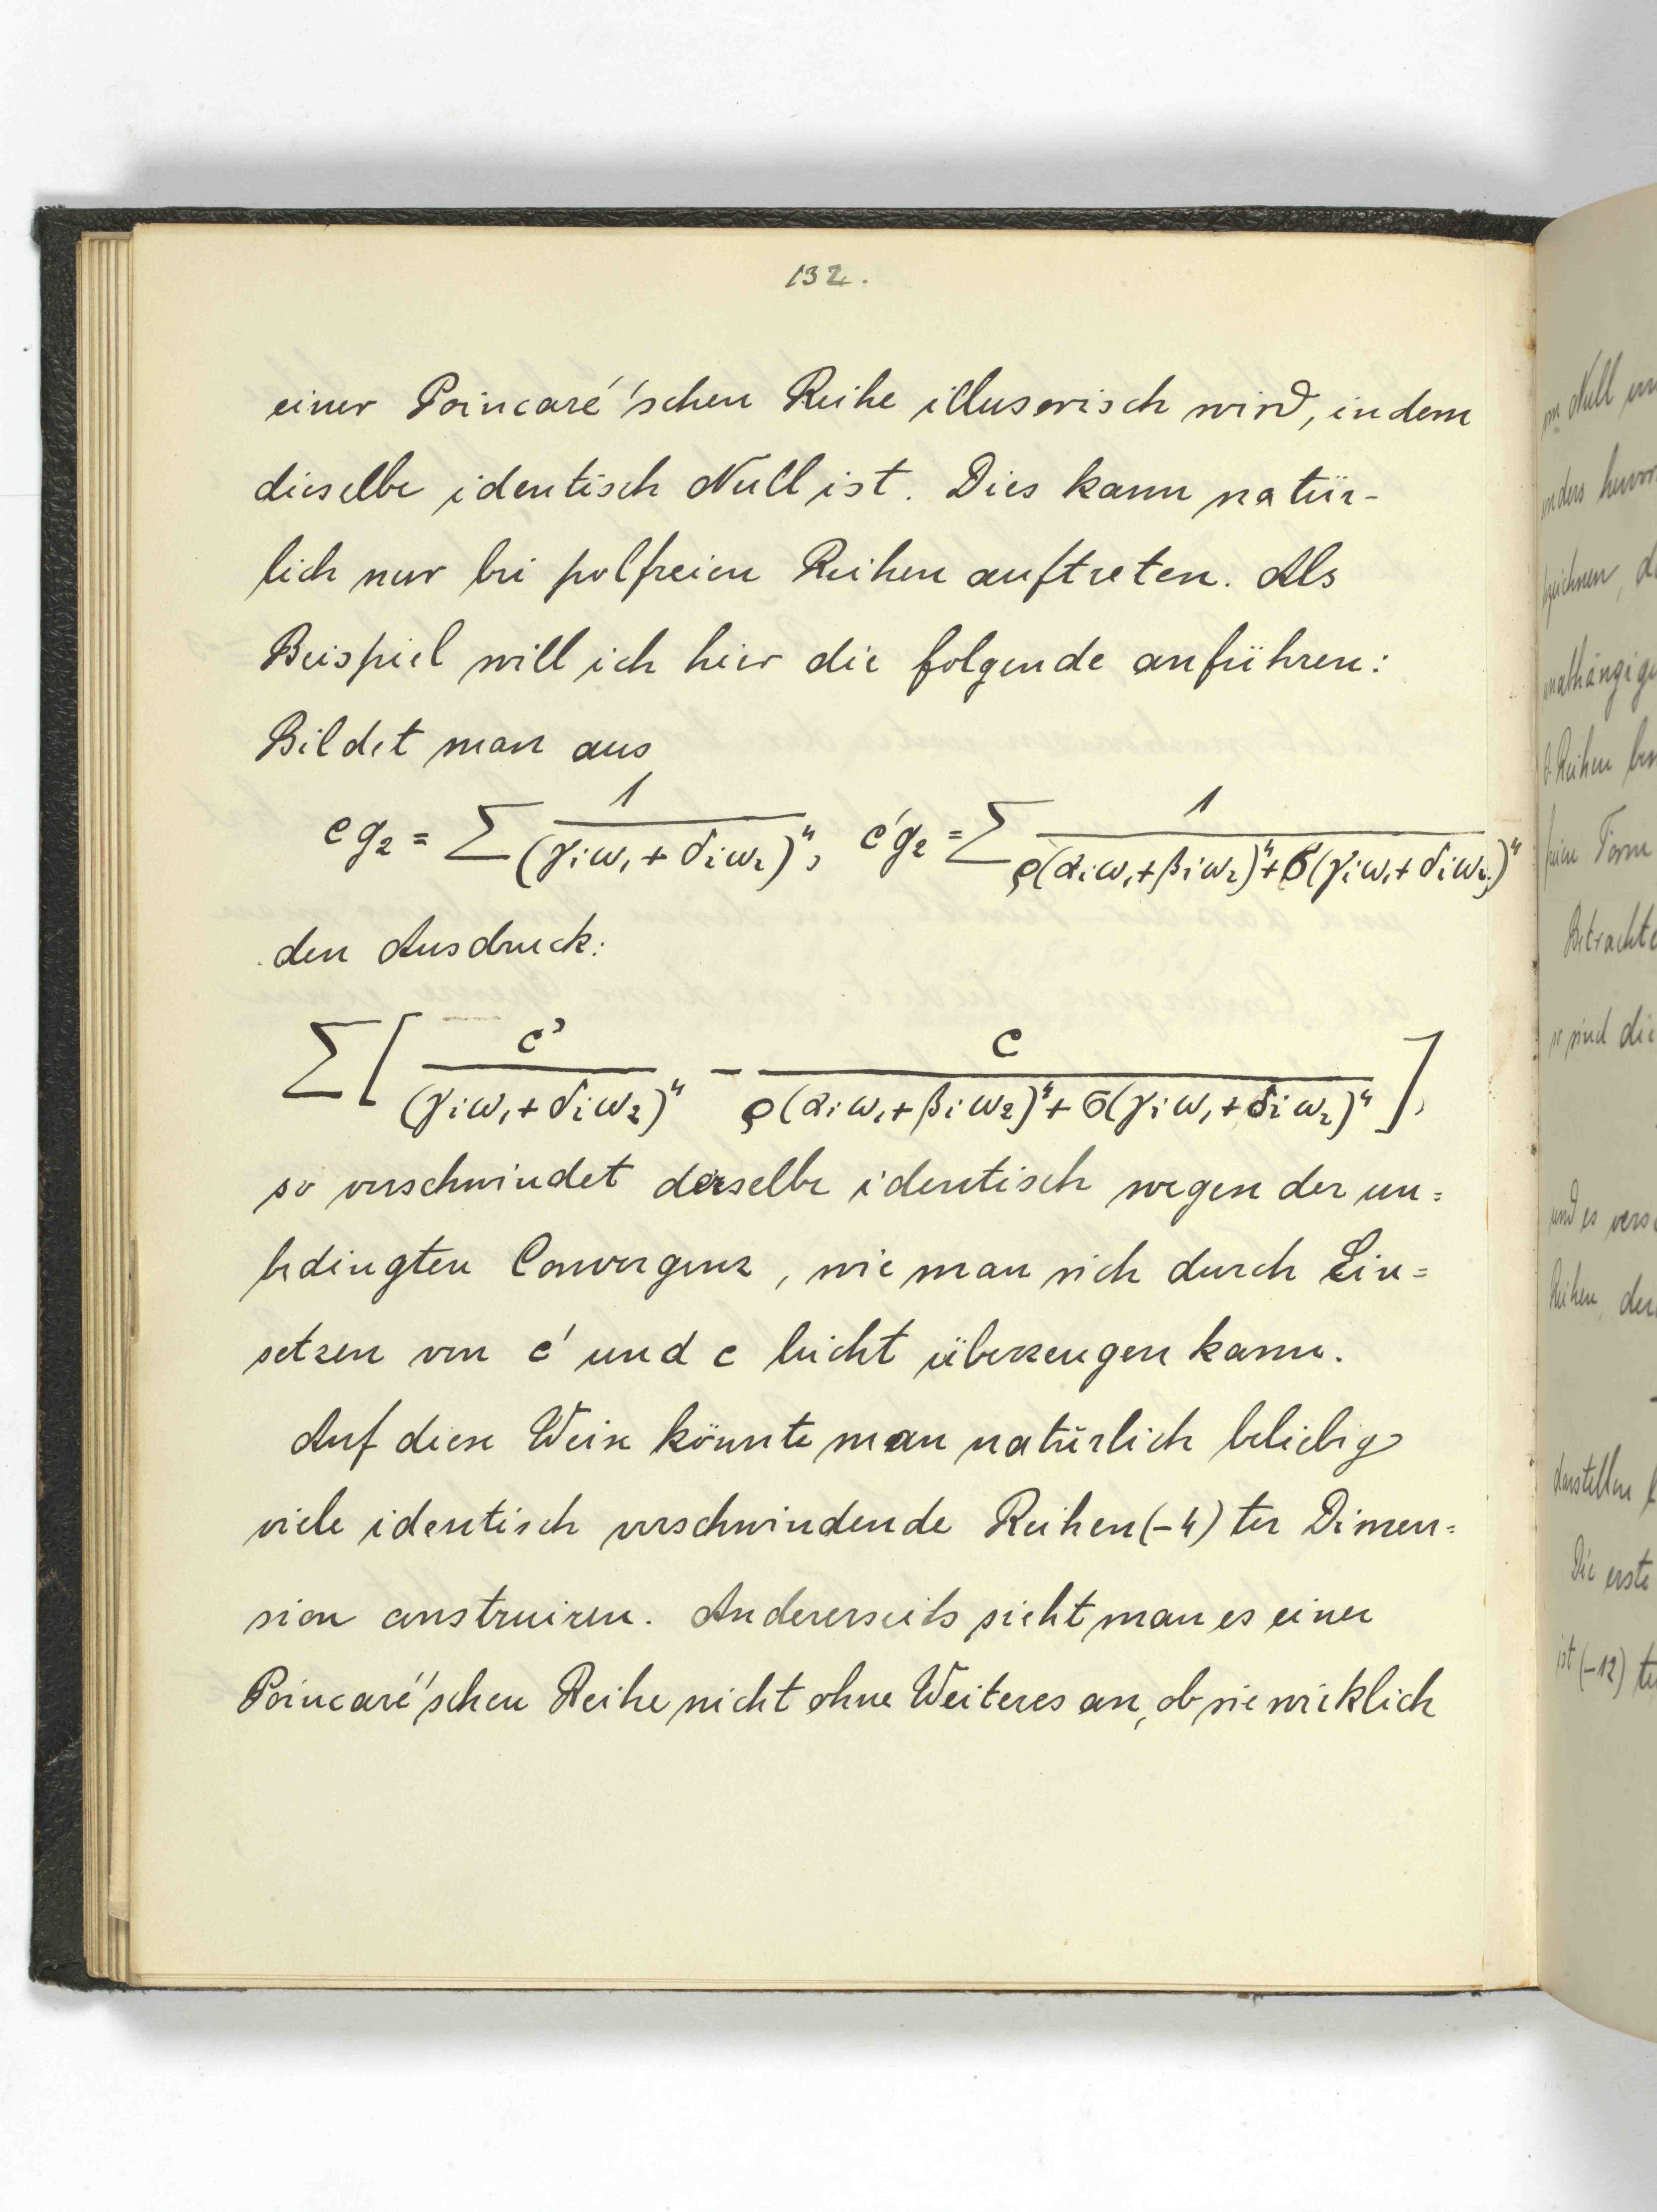 132.
einer Poincaré'schen Reihe illusorisch wird, indem
dieselbe identisch Null ist. Dies kann natür-
lich nur bei polfreien Reihen auftreten. Als
Beispiel will ich hier die folgende anführen:
Bildet man aus
c g₂ = ∑ 1/(γᵢω₁ + δᵢω₂)⁴, c'g₂ = ∑ 1/(ρ(αᵢω₁+βᵢω₂)⁴+σ(γᵢω₁+δᵢω₂)⁴)
den Ausdruck:
∑[ c'/(γᵢω₁+δᵢω₂)⁴ − c/(ρ(αᵢω₁+βᵢω₂)⁴+σ(γᵢω₁+δᵢω₂)⁴) ],
so verschwindet derselbe identisch wegen der un=
bedingten Convergenz, wie man sich durch Ein=
setzen von c' und c leicht überzeugen kann.
Auf diese Weise könnte man natürlich beliebig
viele identisch verschwindende Reihen (-4) ter Dimen=
sion construiren. Andererseits sieht man es einer
Poincaré'schen Reihe nicht ohne Weiteres an, ob sie wirklich
Null
anders
Reihen
Betrachte
sind die
und es
Reihen, der
darstellen
Die erste
ist (-12) te